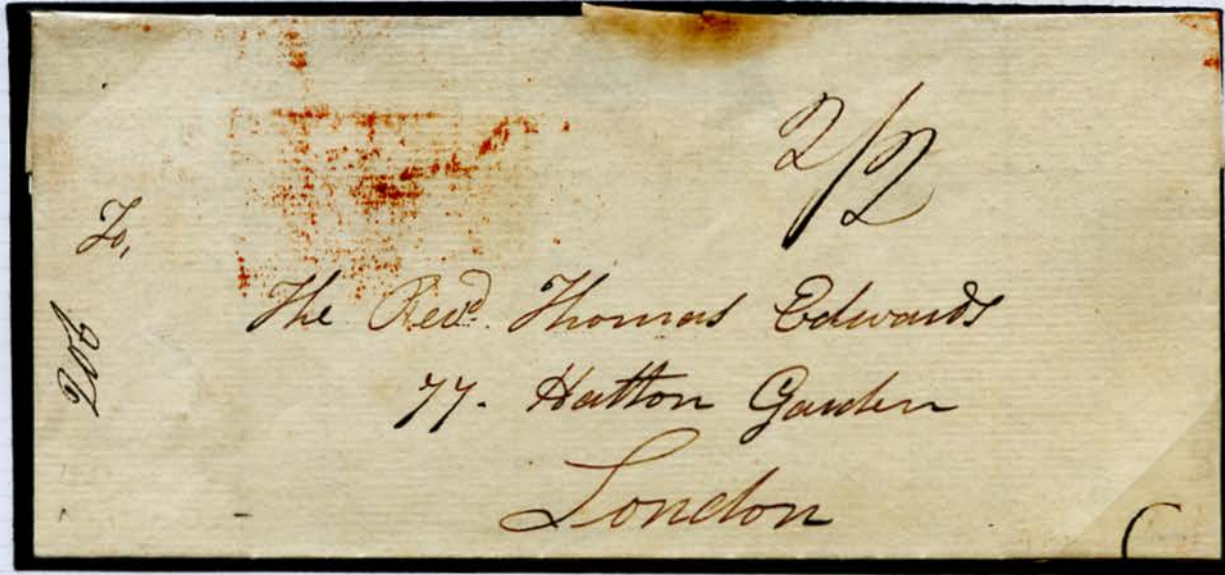 2/2
To,
The Revd. Thomas Edwards
77. Hatton Garden
London